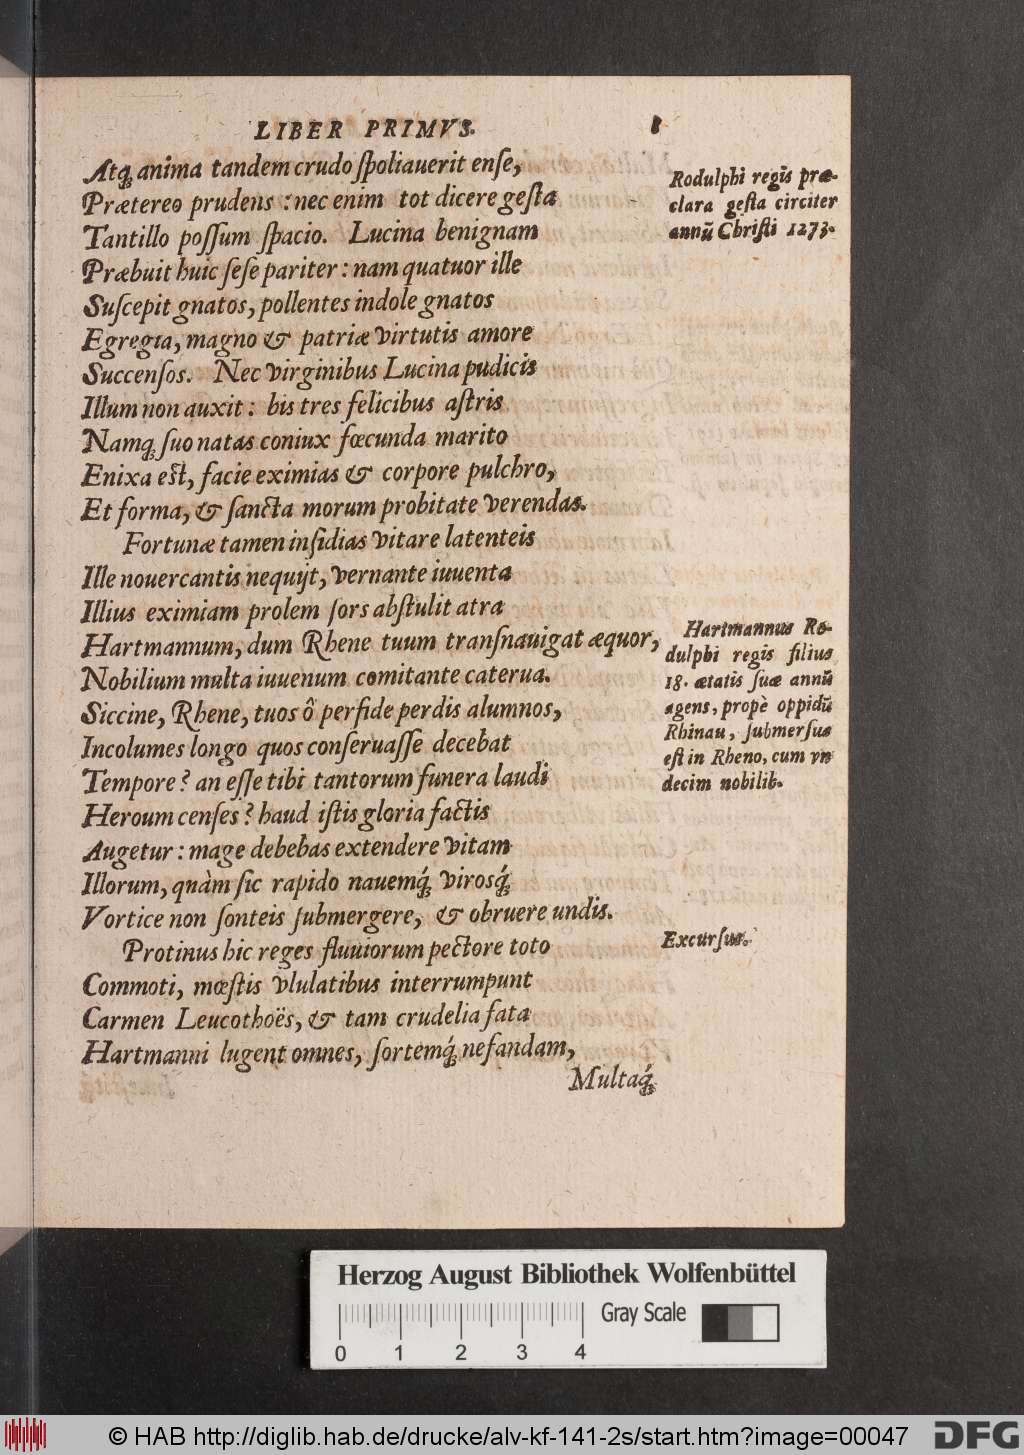 LIBER PRIMVS. 8
Atq́ anima tandem crudo ſpoliauerit enſe,
Prætereo prudens : nec enim tot dicere geſta
Tantillo poſſum ſpacio. Lucina benignam
Præbuit huic ſeſe pariter : nam quatuor ille
Suſcepit gnatos, pollentes indole gnatos
Egregia, magno & patriæ virtutis amore
Succenſos. Nec virginibus Lucina pudicis
Illum non auxit : bis tres felicibus aſtris
Namq́ ſuo natas coniux fœcunda marito
Enixa eſt, facie eximias & corpore pulchro,
Et forma, & ſancta morum probitate verendas.
Fortunæ tamen inſidias vitare latenteis
Ille nouercantis nequijt, vernante iuuenta
Illius eximiam prolem ſors abſtulit atra
Hartmannum, dum Rhene tuum tranſnauigat æquor,
Nobilium multa iuuenum comitante caterua.
Siccine, Rhene, tuos ô perfide perdis alumnos,
Incolumes longo quos conſeruaſſe decebat
Tempore ? an eſſe tibi tantorum funera laudi
Heroum cenſes ? haud iſtis gloria factis
Augetur : mage debebas extendere vitam
Illorum, quàm ſic rapido nauemq́ virosq́
Vortice non ſonteis ſubmergere, & obruere undis.
Protinus hic reges fluuiorum pectore toto
Commoti, mœſtis vlulatibus interrumpunt
Carmen Leucothoës, & tam crudelia fata
Hartmanni lugent omnes, ſortemq́ nefandam,
Multaq́
Rodulphi regis præ-
clara geſta circiter
annũ Chriſti 1273.
Hartmannus Ro-
dulphi regis filius
18. ætatis ſuæ annũ
agens, propè oppidũ
Rhinau, ſubmerſus
eſt in Rheno, cum vn
decim nobilib.
Excurſus.
Herzog August Bibliothek Wolfenbüttel
Gray Scale
0 1 2 3 4
© HAB http://diglib.hab.de/drucke/alv-kf-141-2s/start.htm?image=00047
DFG